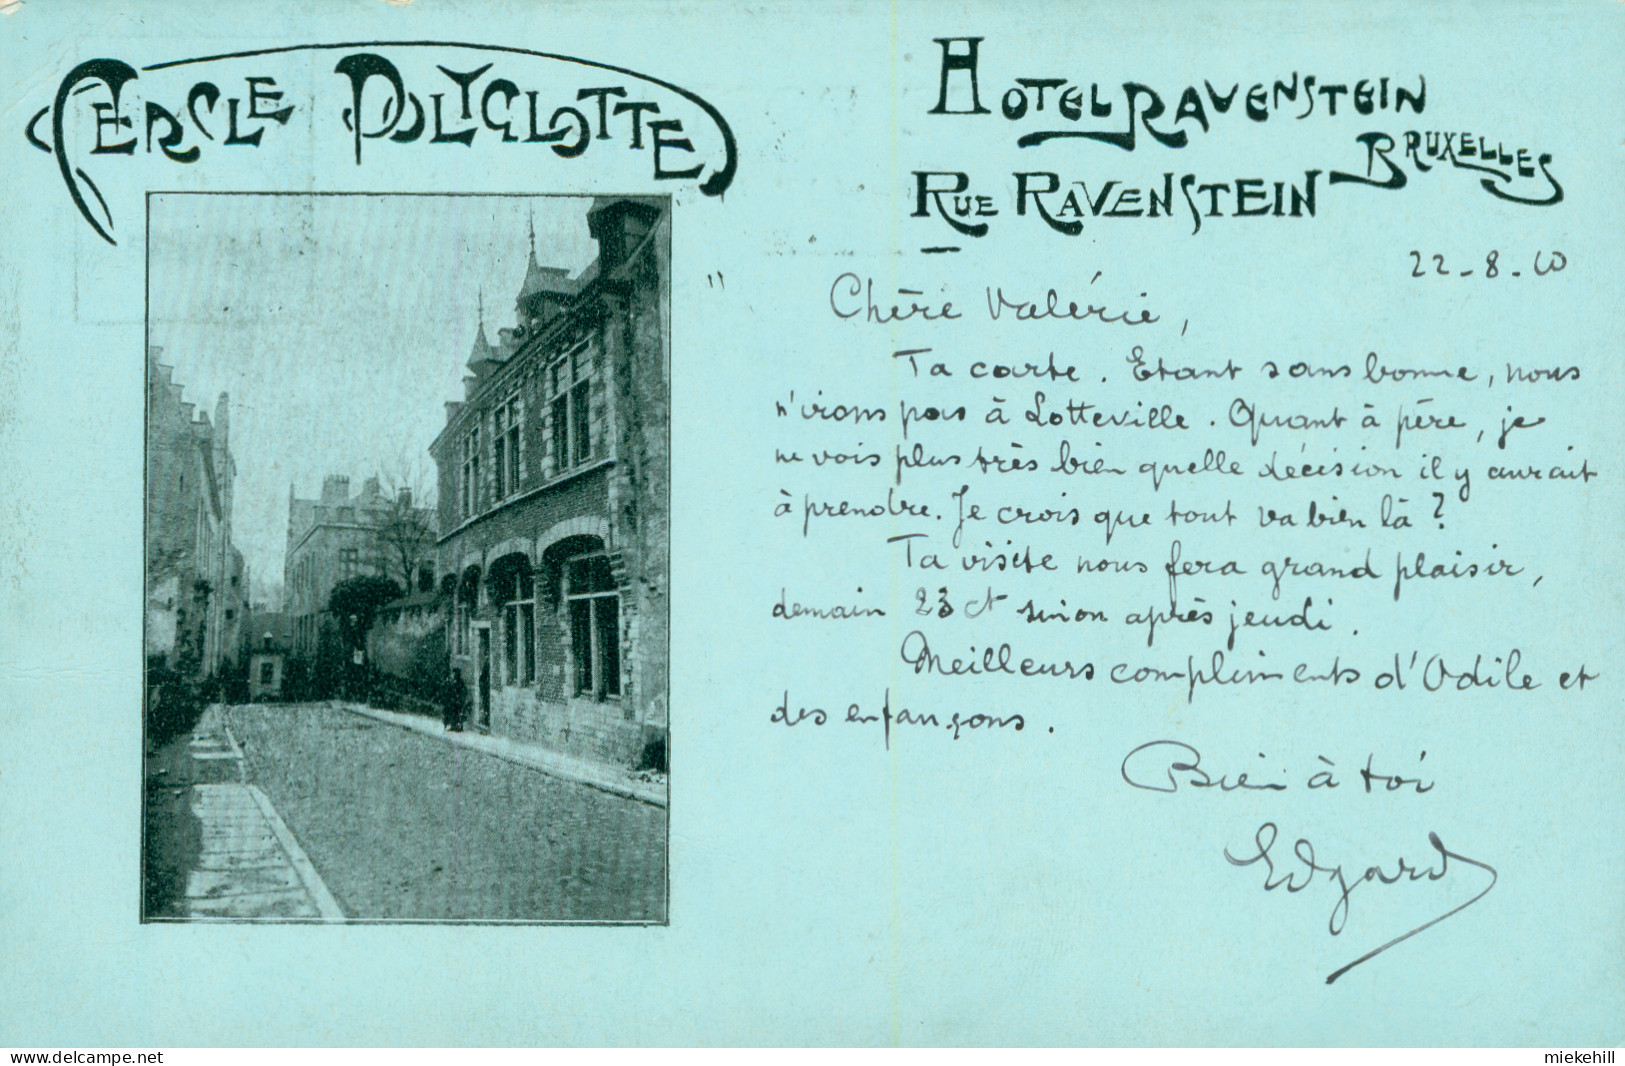 CERCLE POLYGLOTTE
HOTEL RAVENSTEIN
BRUXELLES
RUE RAVENSTEIN
22-8-10
Chère Valérie,
Ta carte. Etant sans bonne, nous
n'irons pas à Lotteville. Quant à père, je
ne vois plus très bien quelle décision il y aurait
à prendre. Je crois que tout va bien là ?
Ta visite nous fera grand plaisir,
demain 23 ct sinon après jeudi.
Meilleurs compliments d'Odile et
des enfançons.
Bien à toi
Edgard
www.delcampe.net
miekehill